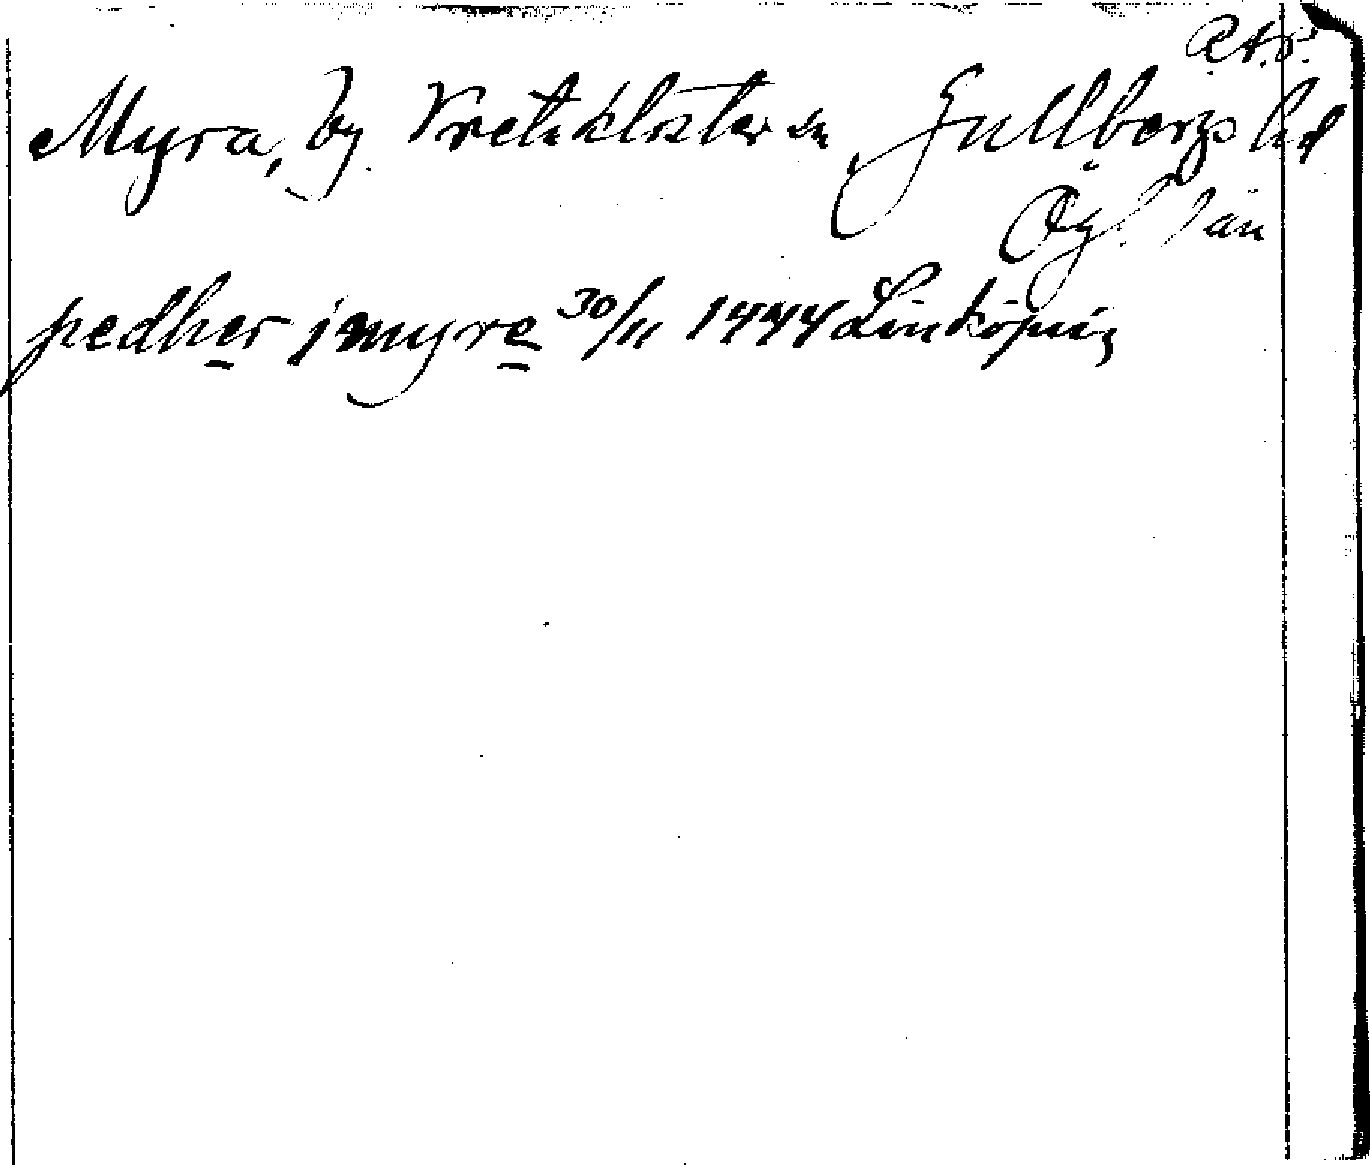 R.A.P.
Myra, by. Vreta kloster sn Gullbergs hd
Ög. län
pedher j myre 30/11 1444 Linköping